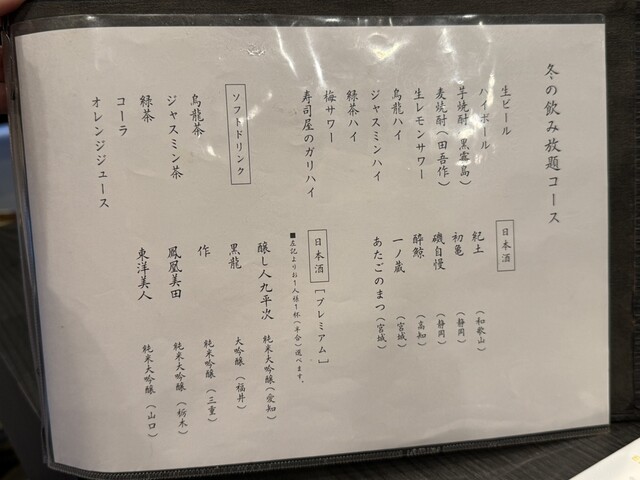 冬の飲み放題コース
生ビール
ハイボール
芋焼酎（黒霧島）
麦焼酎（田吾作）
生レモンサワー
烏龍ハイ
ジャスミンハイ
緑茶ハイ
梅サワー
寿司屋のガリハイ
ソフトドリンク
烏龍茶
ジャスミン茶
緑茶
コーラ
オレンジジュース
日本酒
紀土（和歌山）
初亀（静岡）
磯自慢（静岡）
酔鯨（高知）
一ノ蔵（宮城）
あたごのまつ（宮城）
日本酒［プレミアム］
■左記よりお1人様1杯（半合）選べます。
醸し人九平次 純米大吟醸（愛知）
黒龍 大吟醸（福井）
作 純米吟醸（三重）
鳳凰美田 純米大吟醸（栃木）
東洋美人 純米大吟醸（山口）